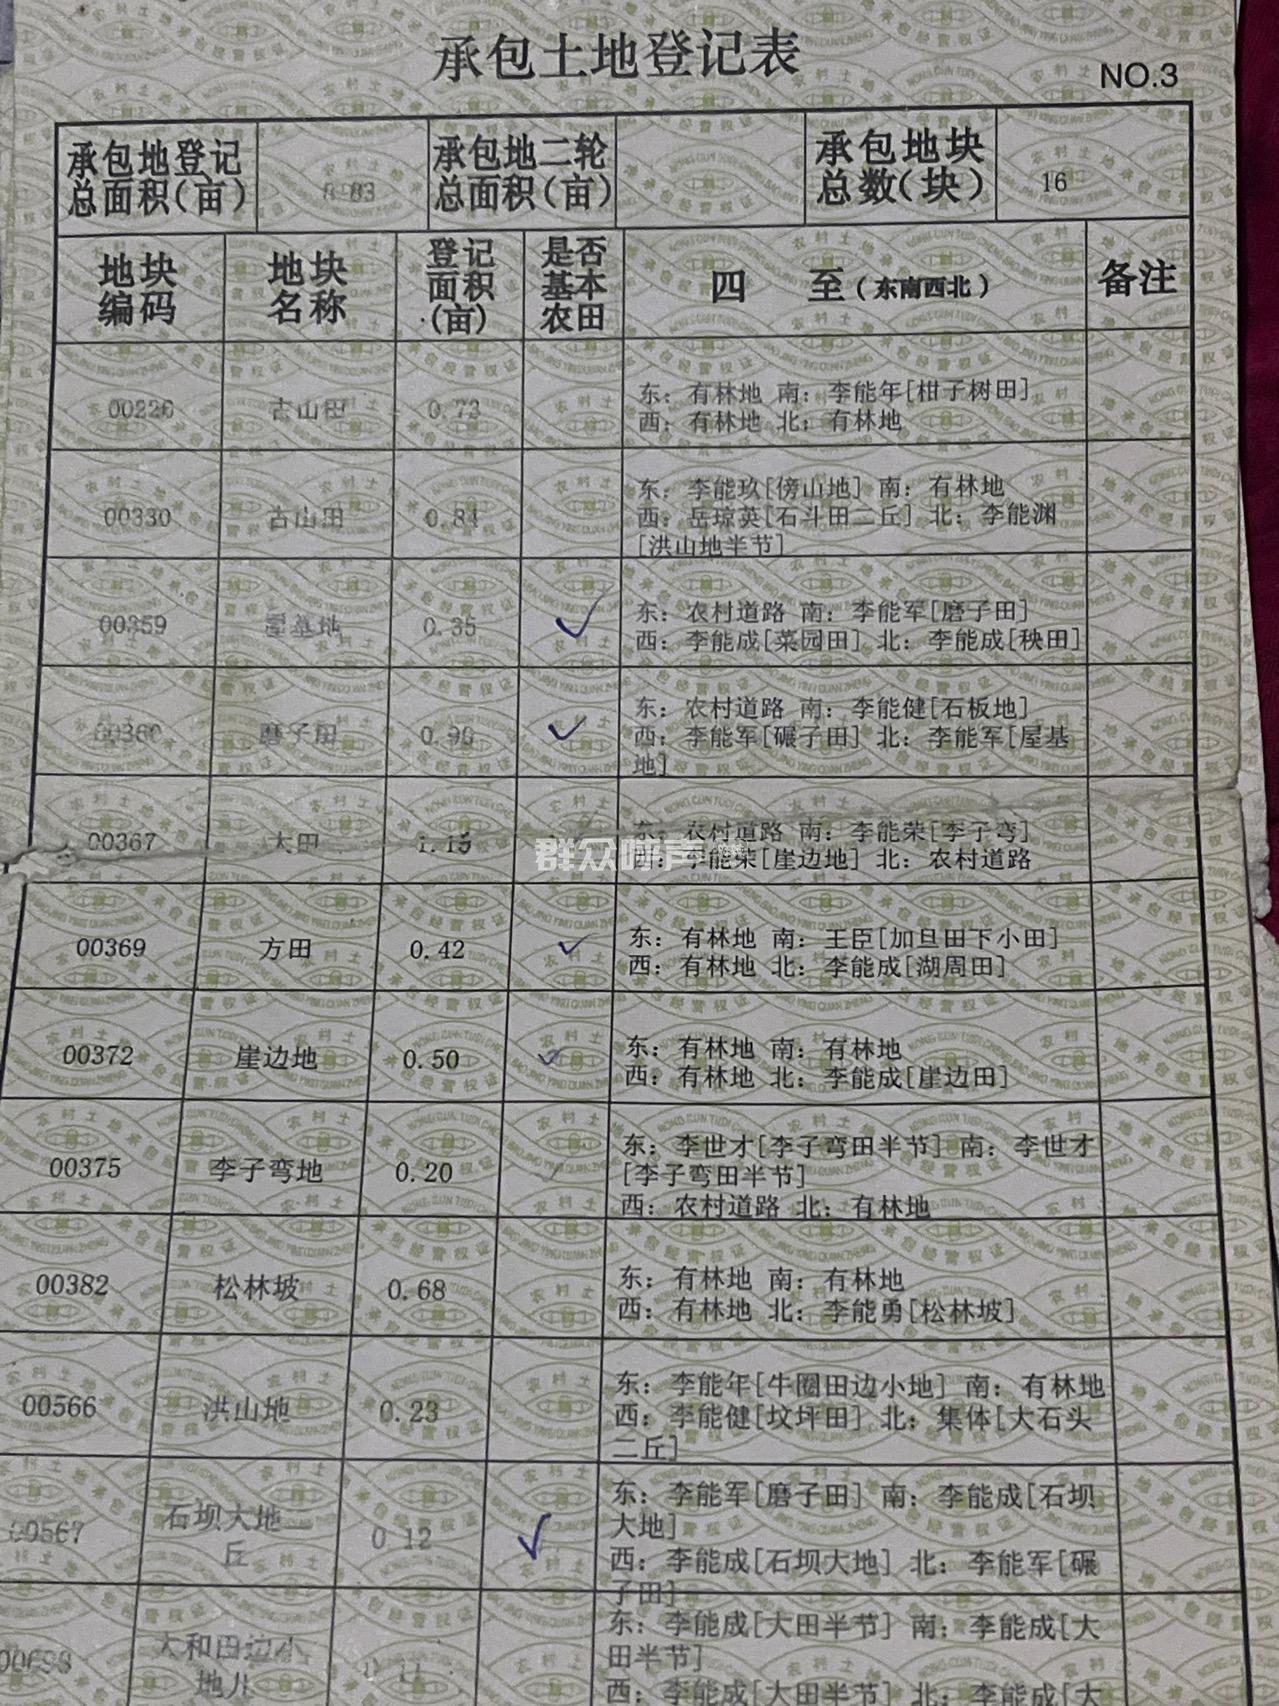 承包土地登记表
NO.3
承包地登记
总面积(亩)
承包地二轮
总面积(亩)
承包地块
总数(块)
16
地块
编码
地块
名称
登记
面积
(亩)
是否
基本
农田
四 至(东南西北)
备注
古山田
东：有林地 南：李能年[柑子树田]
西：有林地 北：有林地
00330 古山田 0.84
东：李能玖[傍山地] 南：有林地
西：岳琼英[石斗田二丘] 北：李能渊
[洪山地半节]
00359 屋基地 0.35 ✓
东：农村道路 南：李能军[磨子田]
西：李能成[菜园田] 北：李能成[秧田]
00360 磨子田 ✓
东：农村道路 南：李能健[石板地]
西：李能军[碾子田] 北：李能军[屋基
地]
00367 大田 1.15
东：农村道路 南：李能荣[李子弯]
西：李能荣[崖边地] 北：农村道路
群众呼声
00369 方田 0.42 ✓
东：有林地 南：王臣[加旦田下小田]
西：有林地 北：李能成[湖周田]
00372 崖边地 0.50 ✓
东：有林地 南：有林地
西：有林地 北：李能成[崖边田]
00375 李子弯地 0.20
东：李世才[李子弯田半节] 南：李世才
[李子弯田半节]
西：农村道路 北：有林地
00382 松林坡 0.68
东：有林地 南：有林地
西：有林地 北：李能勇[松林坡]
00566 洪山地 0.23
东：李能年[牛圈田边小地] 南：有林地
西：李能健[坟坪田] 北：集体[大石头
二丘]
00567 石坝大地二
丘
0.12 ✓
东：李能军[磨子田] 南：李能成[石坝
大地]
西：李能成[石坝大地] 北：李能军[碾
子田]
大和田边小
地儿
东：李能成[大田半节] 南：李能成[大
田半节]
西：李能成[大田半节] 北：李能成[大